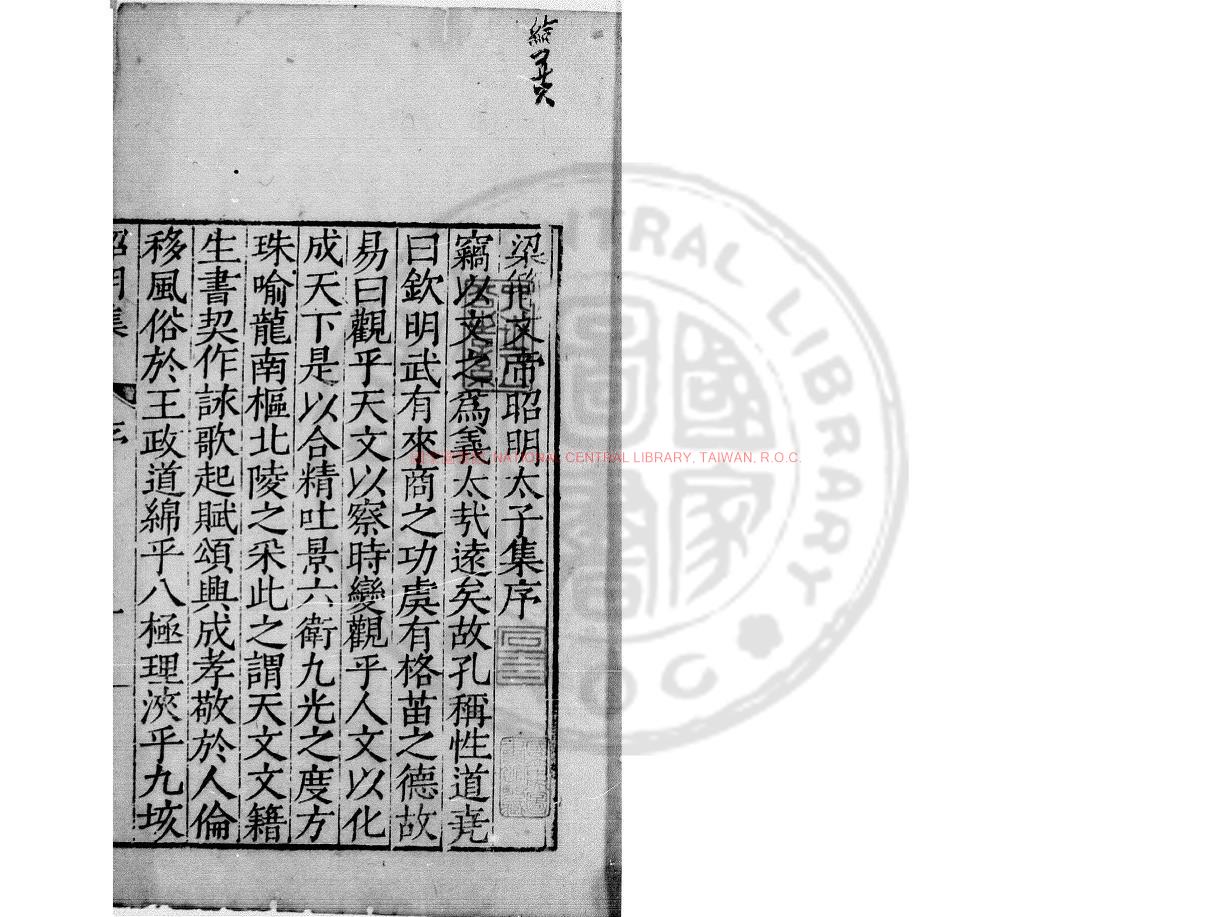 梁簡文帝昭明太子集序
竊以文之爲義太哉遠矣故孔稱性道堯
曰欽明武有來商之功虞有格苗之德故
易曰觀乎天文以察時變觀乎人文以化
成天下是以合精吐景六衛九光之度方
珠喻龍南樞北陵之采此之謂天文文籍
生書契作詠歌起賦頌興成孝敬於人倫
移風俗於王政道綿乎八極理浹乎九垓
昭明集 序 一
NATIONAL CENTRAL LIBRARY, TAIWAN, R.O.C.